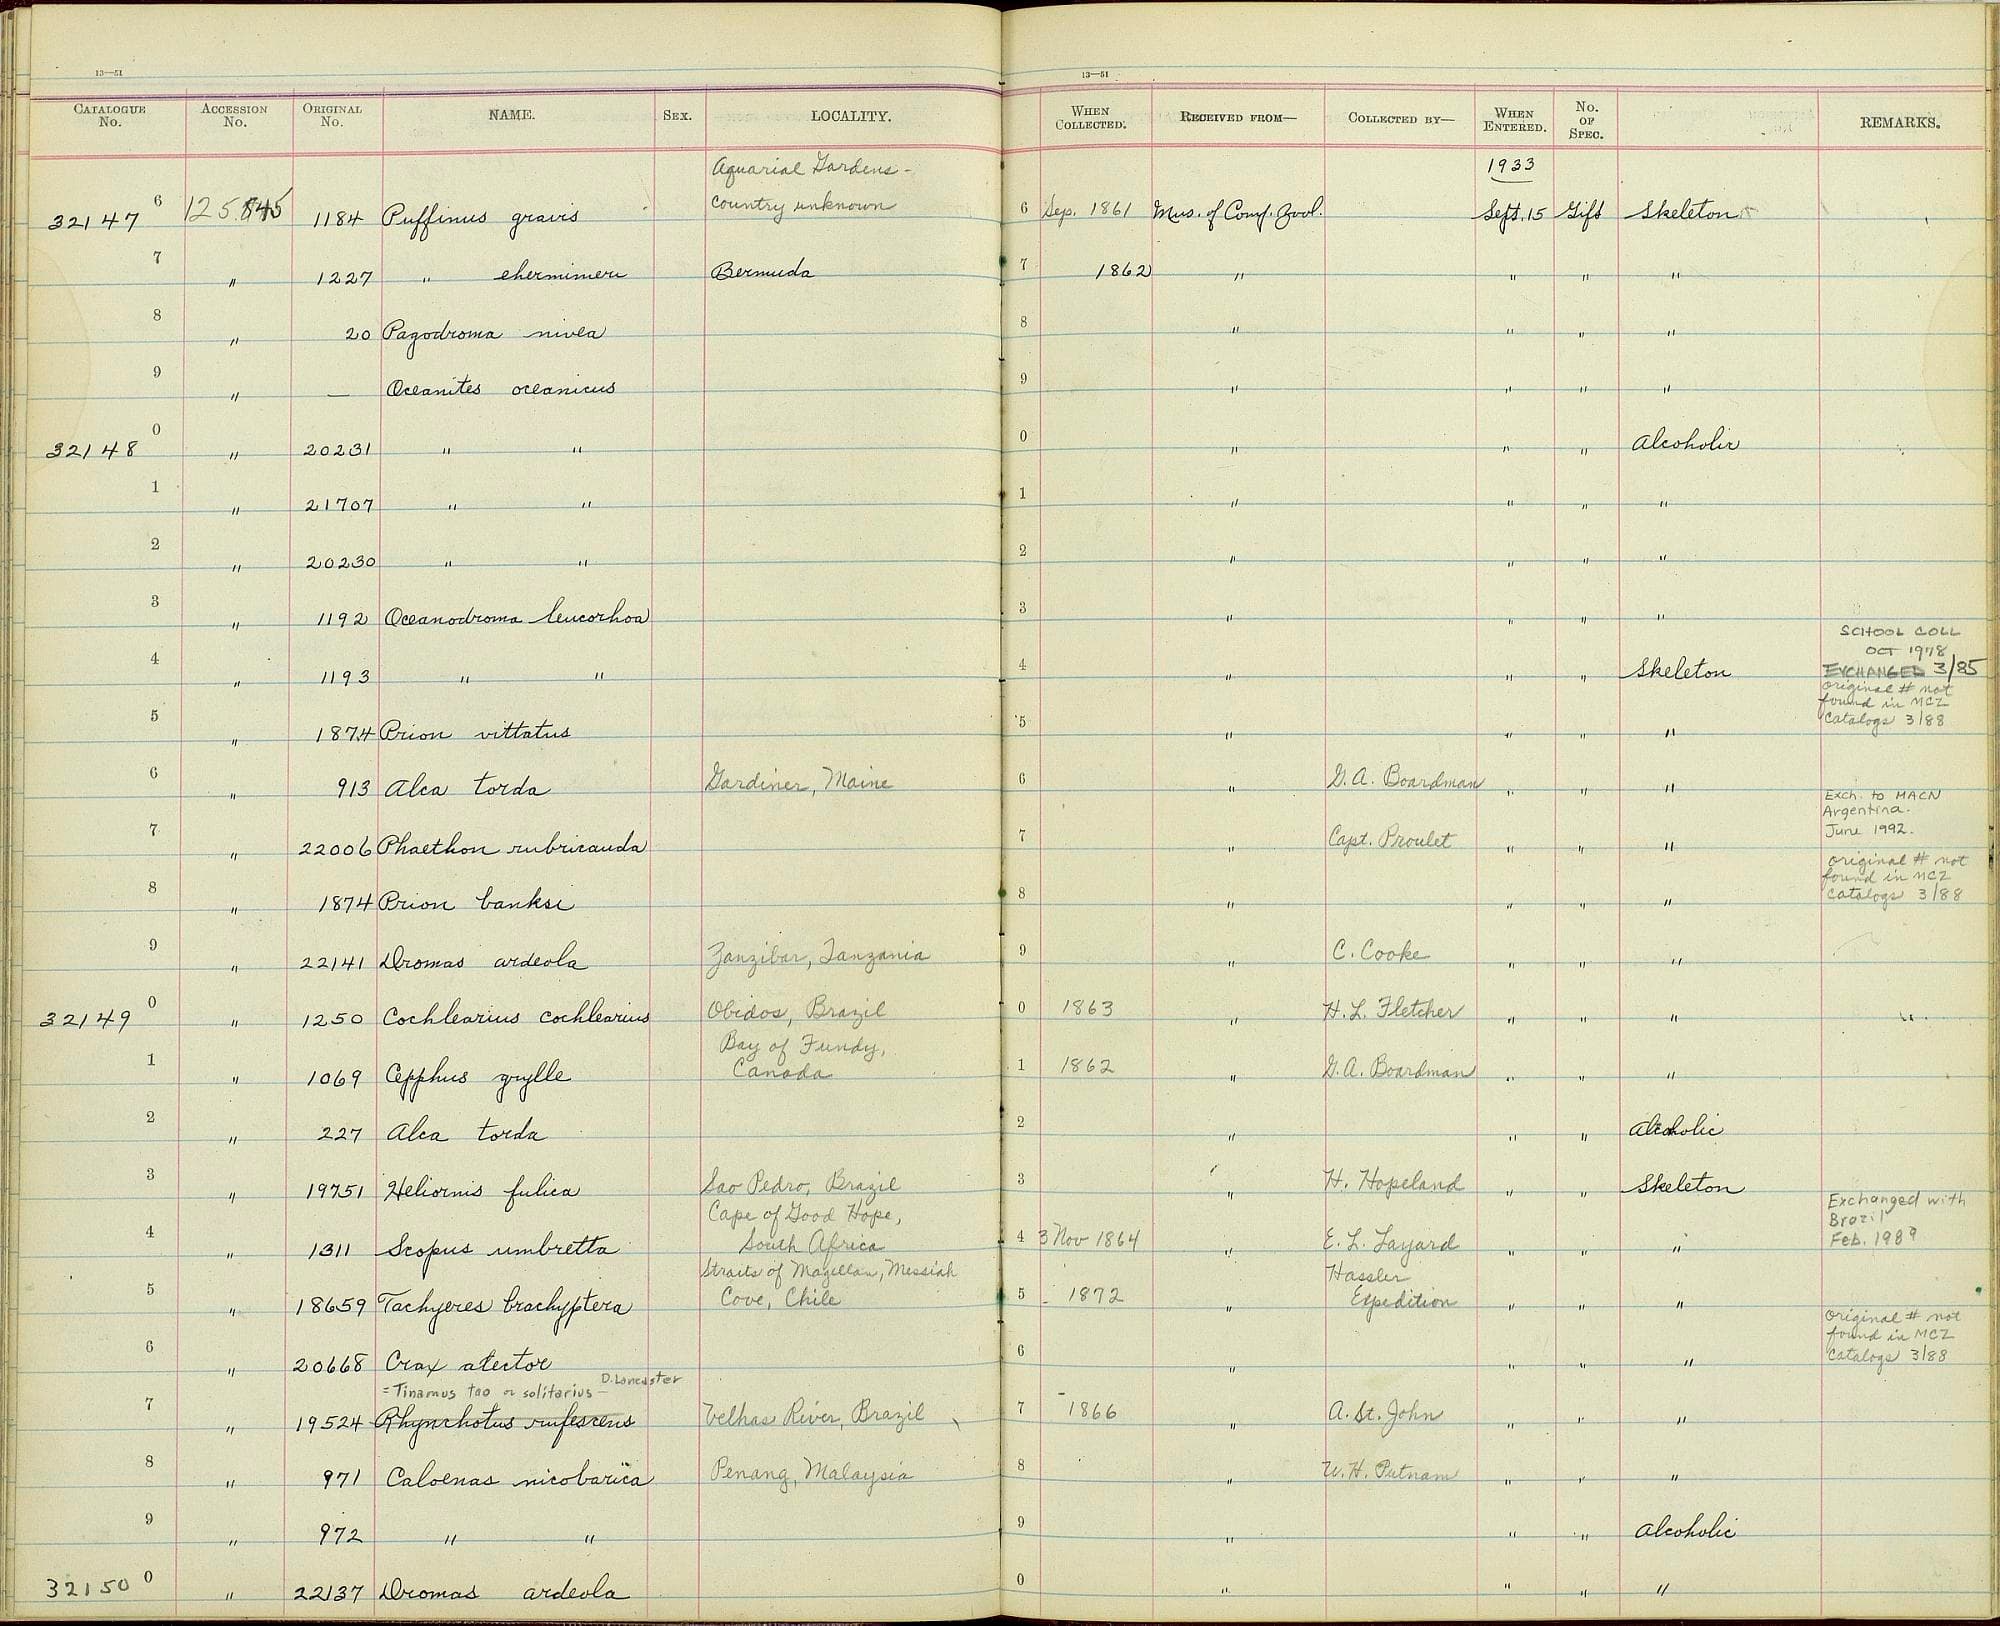 13—51
CATALOGUE No. ACCESSION No. ORIGINAL No. NAME. SEX. LOCALITY.
Aquarial Gardens -
country unknown
32147 6 1184 Puffinus gravis
7 " 1227 " lherminieri Bermuda
8 " 20 Pagodroma nivea
9 " — Oceanites oceanicus
32148 0 " 20231 " "
1 " 21707 " "
2 " 20230 " "
3 " 1192 Oceanodroma leucorhoa
4 " 1193 " "
5 " 1874 Prion vittatus
6 " 913 Alca torda Gardiner, Maine
7 " 22006 Phaethon rubricauda
8 " 1874 Prion banksi
9 " 22141 Dromas ardeola Zanzibar, Tanzania
32149 0 " 1250 Cochlearius cochlearius Obidos, Brazil
Bay of Fundy,
1 " 1069 Cepphus grylle Canada
2 " 227 Alca torda
3 " 19751 Heliornis fulica Sao Pedro, Brazil
Cape of Good Hope,
4 " 1311 Scopus umbretta South Africa
Straits of Magellan, Messiah
5 " 18659 Tachyeres brachyptera Cove, Chile
6 " 20668 Crax alector
= Tinamus tao or solitarius — D. Lancaster
7 " 19524 Rhynchotus rufescens Velhas River, Brazil
8 " 971 Caloenas nicobarica Penang, Malaysia
9 " 972 " "
32150 0 " 22137 Dromas ardeola
13—51
WHEN COLLECTED. RECEIVED FROM— COLLECTED BY— WHEN ENTERED. No. OF SPEC. REMARKS.
1933
6 Sep. 1861 Mus. of Comp. Zool. Sept. 15 Gift Skeleton
7 1862 " " " "
8 " " " "
9 " " " "
0 " " " Alcoholic
1 " " " "
2 " " " "
3 " " " "
SCHOOL COLL
OCT 1978
4 " " " Skeleton EXCHANGED 3/85
original # not
found in MCZ
catalogs 3/88
5 " " " "
6 " G. A. Boardman " " "
Exch. to MACN
Argentina.
June 1992.
7 " Capt. Proulet " " "
original # not
found in MCZ
catalogs 3/88
8 " " " "
9 " C. Cooke " " "
0 1863 " H. L. Fletcher " " "
1 1862 " G. A. Boardman " " "
2 " " " Alcoholic
3 " H. Hopeland " " Skeleton
Exchanged with
Brazil
Feb. 1989
4 3 Nov 1864 " E. L. Layard " " "
Hassler
5 1872 " Expedition " " "
original # not
found in MCZ
catalogs 3/88
6 " " " "
7 1866 " A. St. John " " "
8 " W. H. Putnam " " "
9 " " " Alcoholic
0 " " " "